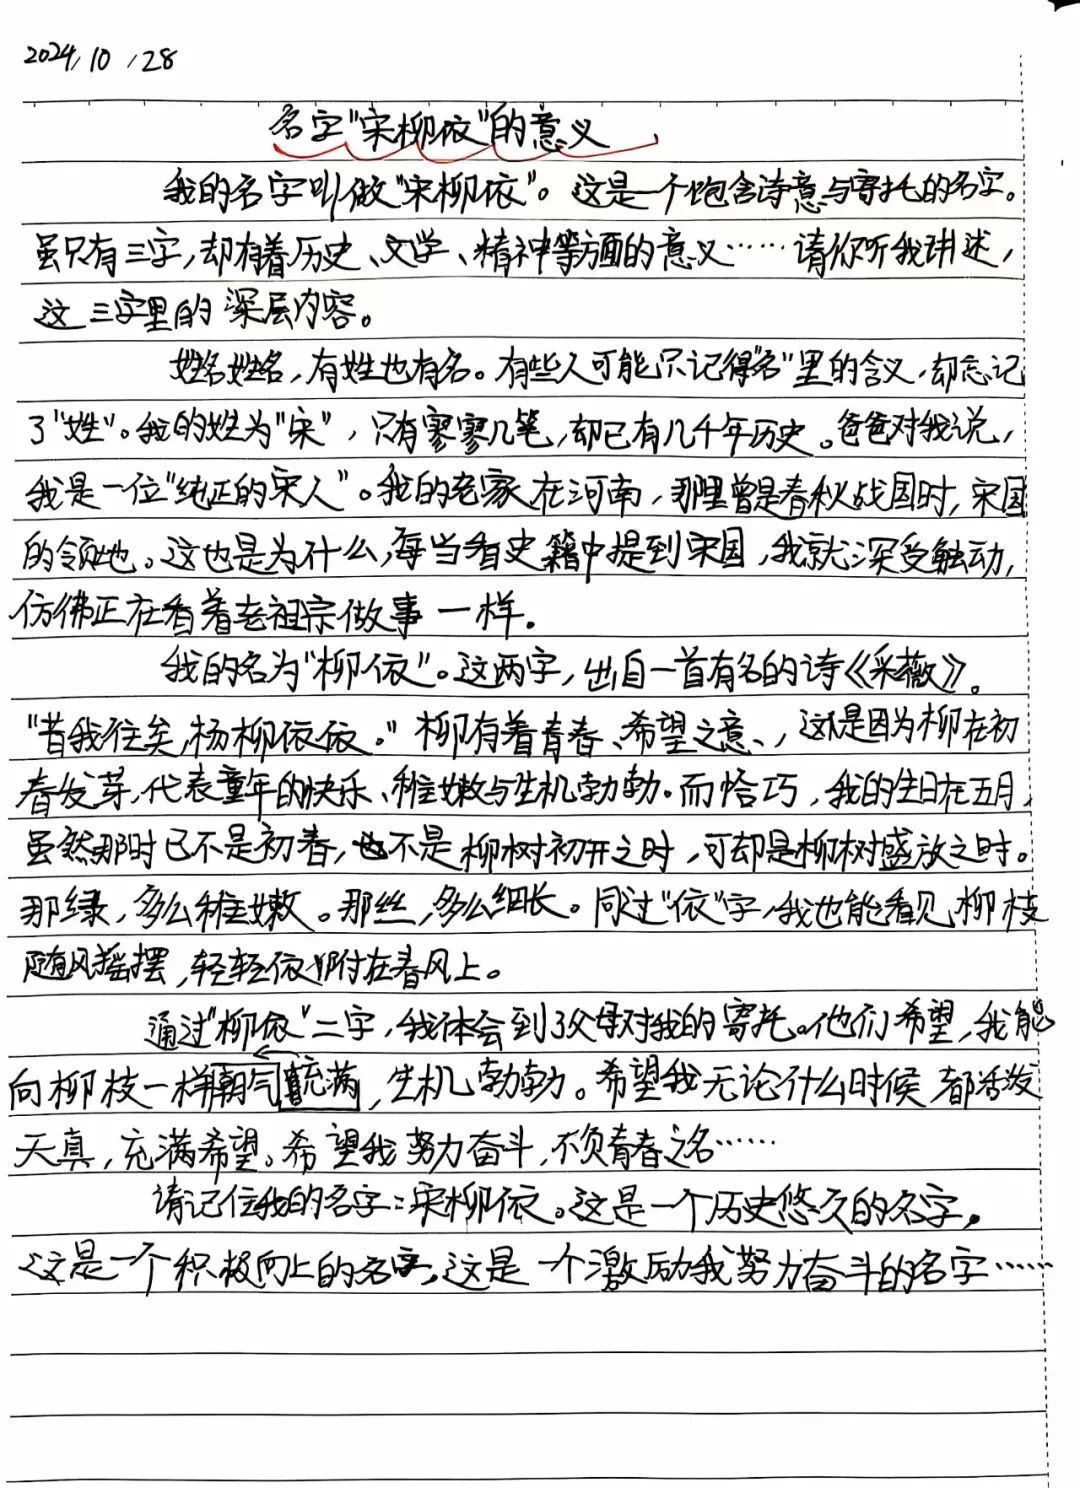 2024.10.28
名字"宋柳依"的意义
我的名字叫做"宋柳依"。这是一个饱含诗意与寄托的名字。
虽只有三字，却有着历史、文学、精神等方面的意义……请你听我讲述，
这三字里的深层内容。
姓名姓名，有姓也有名。有些人可能只记得"名"里的含义，却忘记
了"姓"。我的姓为"宋"，只有寥寥几笔，却已有几千年历史。爸爸对我说，
我是一位"纯正的宋人"。我的老家在河南，那里曾是春秋战国时，宋国
的领地。这也是为什么，每当看史籍中提到宋国，我就深受触动，
仿佛正在看着老祖宗做事一样。
我的名为"柳依"。这两字，出自一首有名的诗《采薇》。
"昔我往矣，杨柳依依。"柳有着青春、希望之意、，这是因为柳在初
春发芽，代表童年的快乐、稚嫩与生机勃勃。而恰巧，我的生日在五月，
虽然那时已不是初春，也不是柳树初开之时，可却是柳树盛放之时。
那绿，多么稚嫩。那丝，多么细长。同过"依"字，我也能看见，柳枝
随风摇摆，轻轻依附在春风上。
通过"柳依"二字，我体会到了父母对我的寄托。他们希望，我能
向柳枝一样朝气充满，生机勃勃。希望我无论什么时候都活发
天真，充满希望。希望我努力奋斗，不负青春之名……
请记住我的名字：宋柳依。这是一个历史悠久的名字。
这是一个积极向上的名字，这是一个激励我努力奋斗的名字……